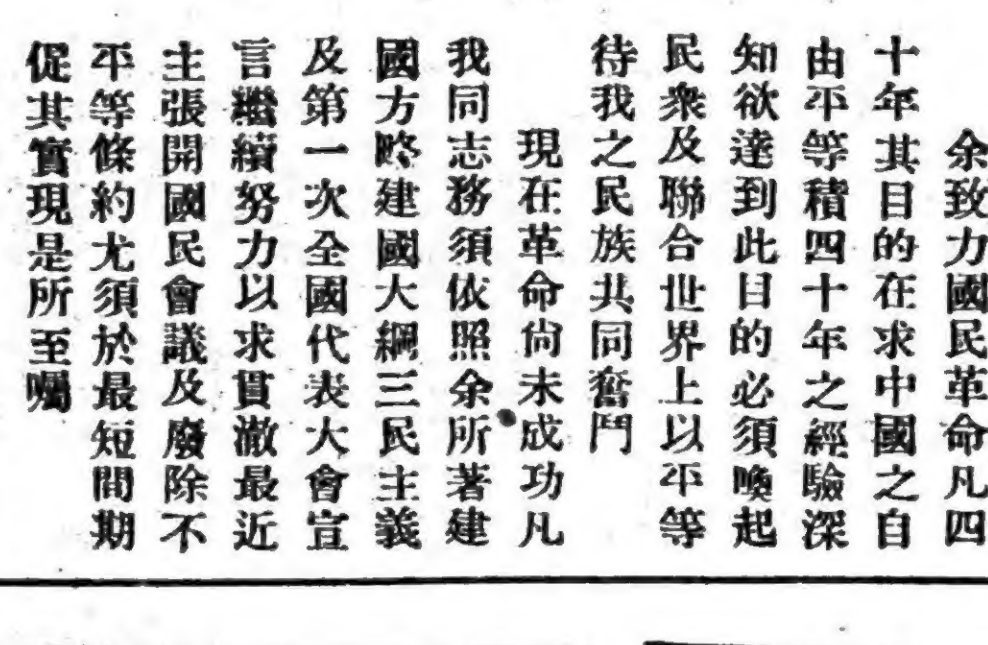 余致力國民革命凡四
十年其目的在求中國之自
由平等積四十年之經驗深
知欲達到此目的必須喚起
民衆及聯合世界上以平等
待我之民族共同奮鬥
現在革命尙未成功凡
我同志務須依照余所著建
國方略建國大綱三民主義
及第一次全國代表大會宣
言繼續努力以求貫澈最近
主張開國民會議及廢除不
平等條約尤須於最短間期
促其實現是所至囑